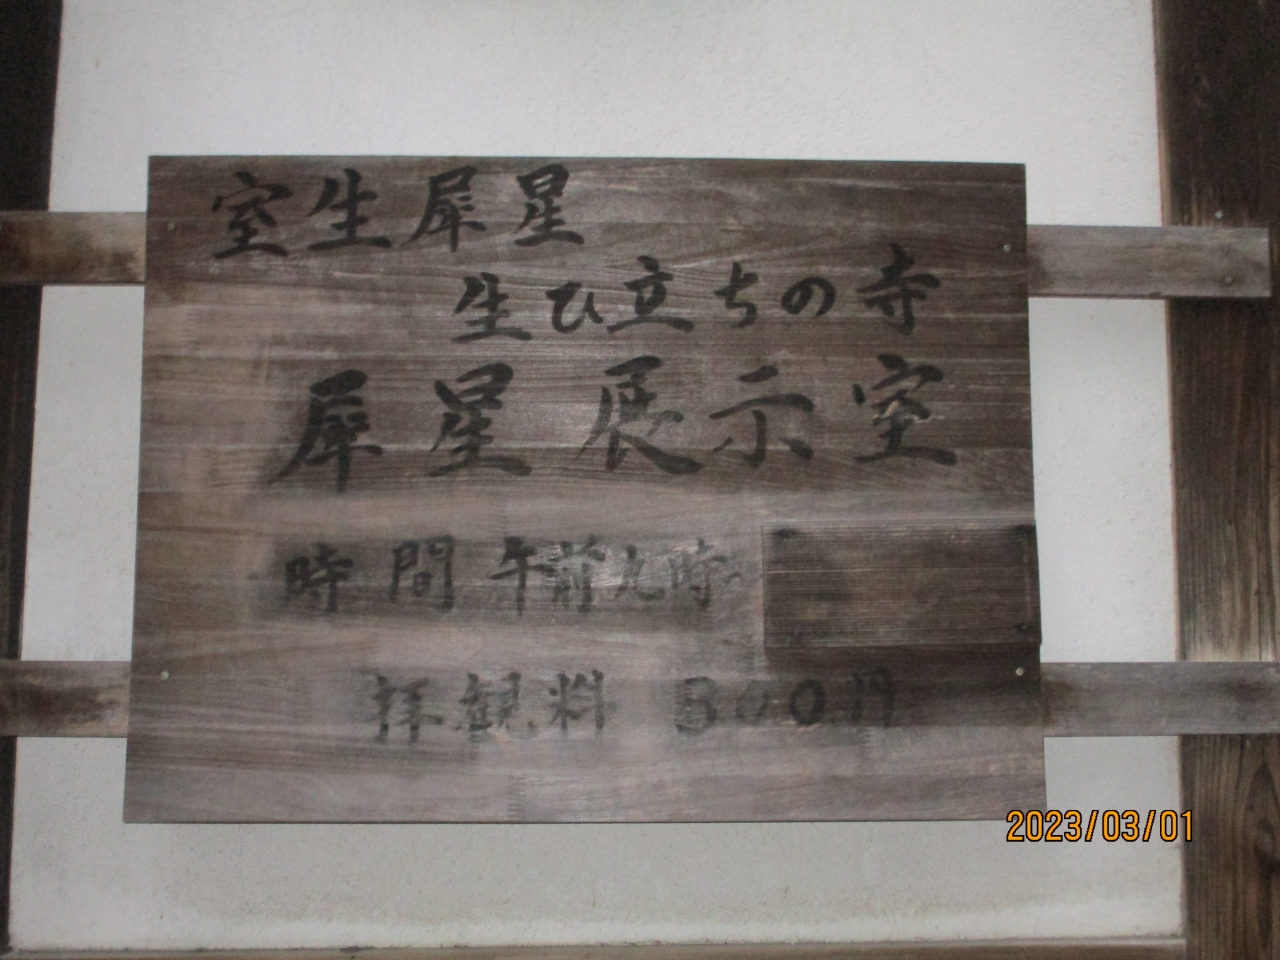 室生犀星
生ひ立ちの寺
犀星展示室
時間 午前九時
拝観料 300円
2023/03/01